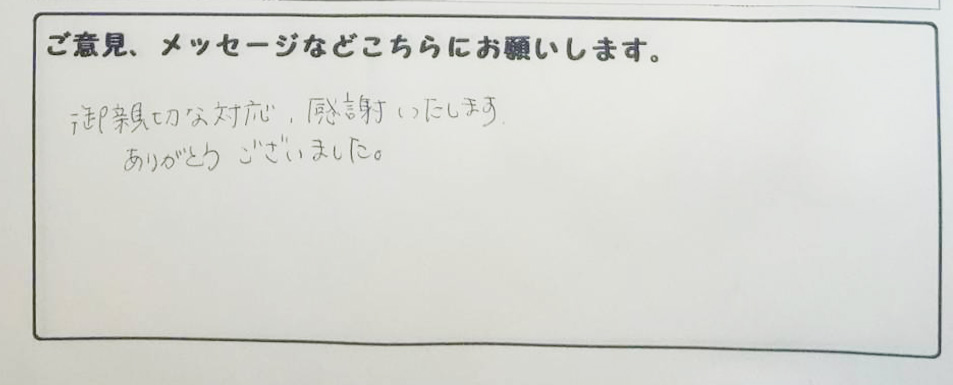 ご意見、メッセージなどこちらにお願いします。
御親切な対応、感謝いたします.
ありがとうございました。